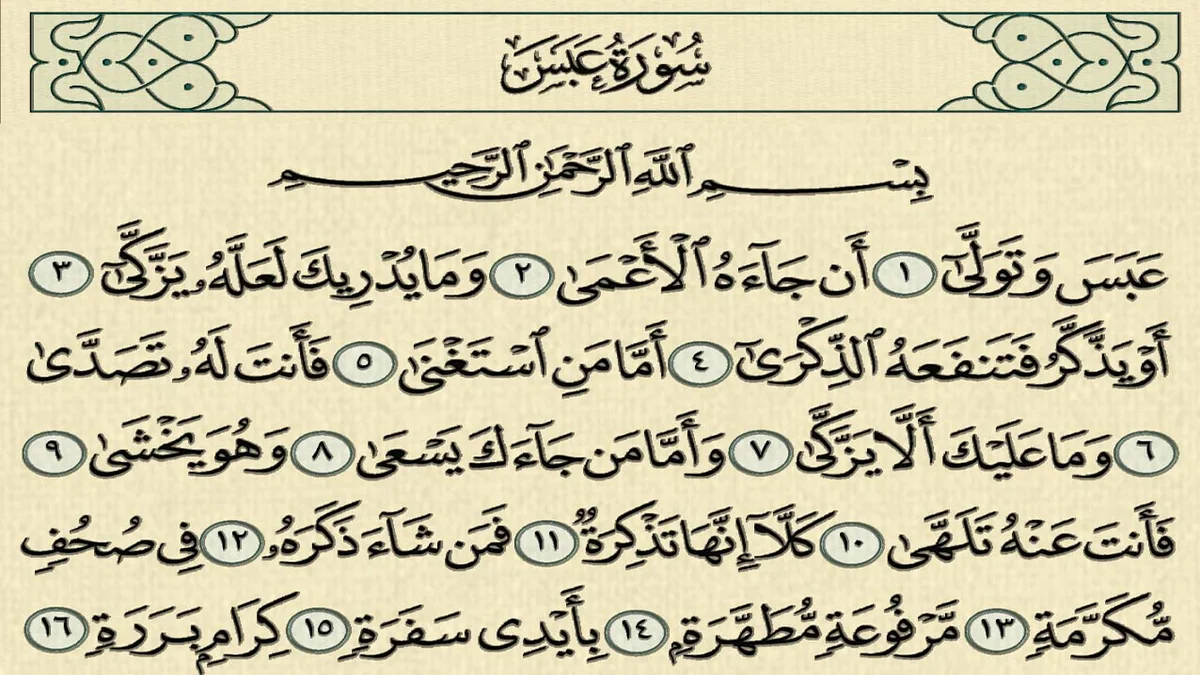 سُورَةُ عَبَسَ
بِسْمِ ٱللَّهِ ٱلرَّحْمَٰنِ ٱلرَّحِيمِ
عَبَسَ وَتَوَلَّىٰٓ ١ أَن جَآءَهُ ٱلْأَعْمَىٰ ٢ وَمَا يُدْرِيكَ لَعَلَّهُۥ يَزَّكَّىٰٓ ٣
أَوْ يَذَّكَّرُ فَتَنفَعَهُ ٱلذِّكْرَىٰٓ ٤ أَمَّا مَنِ ٱسْتَغْنَىٰ ٥ فَأَنتَ لَهُۥ تَصَدَّىٰ
٦ وَمَا عَلَيْكَ أَلَّا يَزَّكَّىٰ ٧ وَأَمَّا مَن جَآءَكَ يَسْعَىٰ ٨ وَهُوَ يَخْشَىٰ ٩
فَأَنتَ عَنْهُ تَلَهَّىٰ ١٠ كَلَّآ إِنَّهَا تَذْكِرَةٌ ١١ فَمَن شَآءَ ذَكَرَهُۥ ١٢ فِى صُحُفٍ
مُّكَرَّمَةٍ ١٣ مَّرْفُوعَةٍ مُّطَهَّرَةٍۭ ١٤ بِأَيْدِى سَفَرَةٍ ١٥ كِرَامٍۭ بَرَرَةٍ ١٦